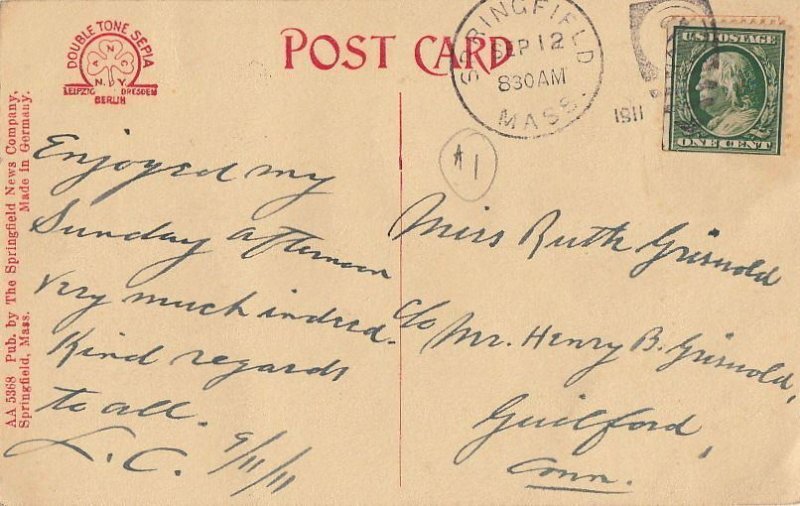 DOUBLE TONE SEPIA
A N C
N.Y.
LEIPZIG DRESDEN
BERLIN
POST CARD
SPRINGFIELD
SEP 12
830 AM
MASS.
1911
U.S. POSTAGE
ONE CENT
$1
AA 5368 Pub. by The Springfield News Company,
Springfield, Mass. Made in Germany.
Enjoyed my
Sunday afternoon
very much indeed.
Kind regards
to all.
L.C. 9/11/11
Miss Ruth Griswold
c/o Mr. Henry B. Griswold,
Guilford,
Conn.